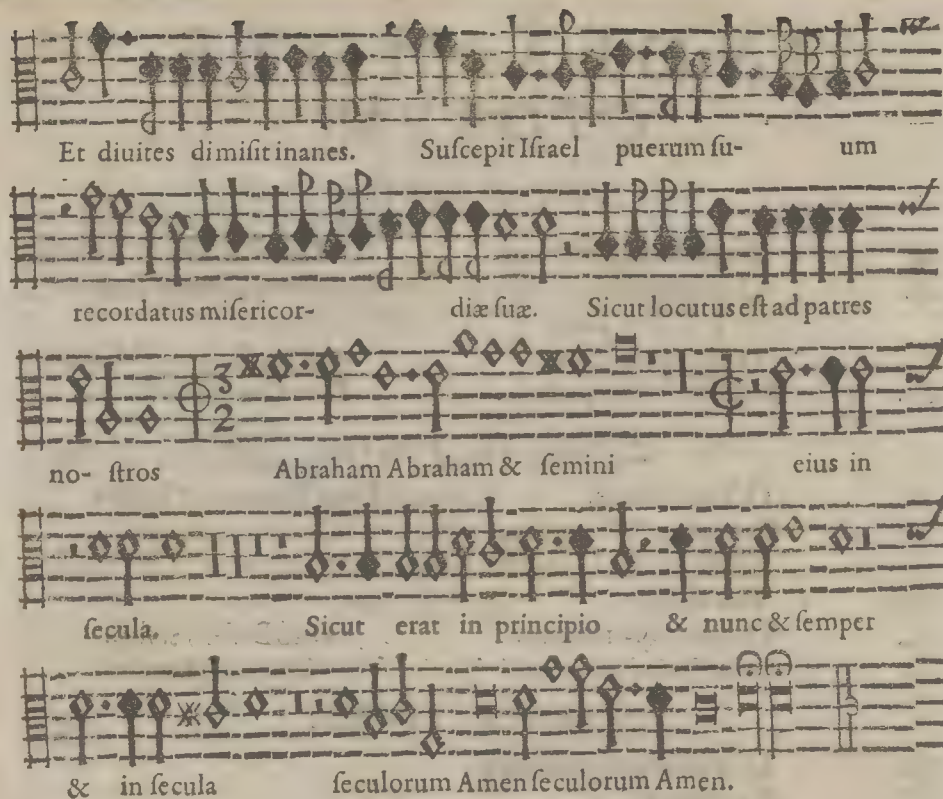 Et diuites dimiſit inanes. Suſcepit Iſrael puerum ſu- um
recordatus miſericor- diæ ſuæ. Sicut locutus eſt ad patres
3
2
no- ſtros Abraham Abraham & ſemini eius in
ſecula. Sicut erat in principio & nunc & ſemper
& in ſecula ſeculorum Amen ſeculorum Amen.